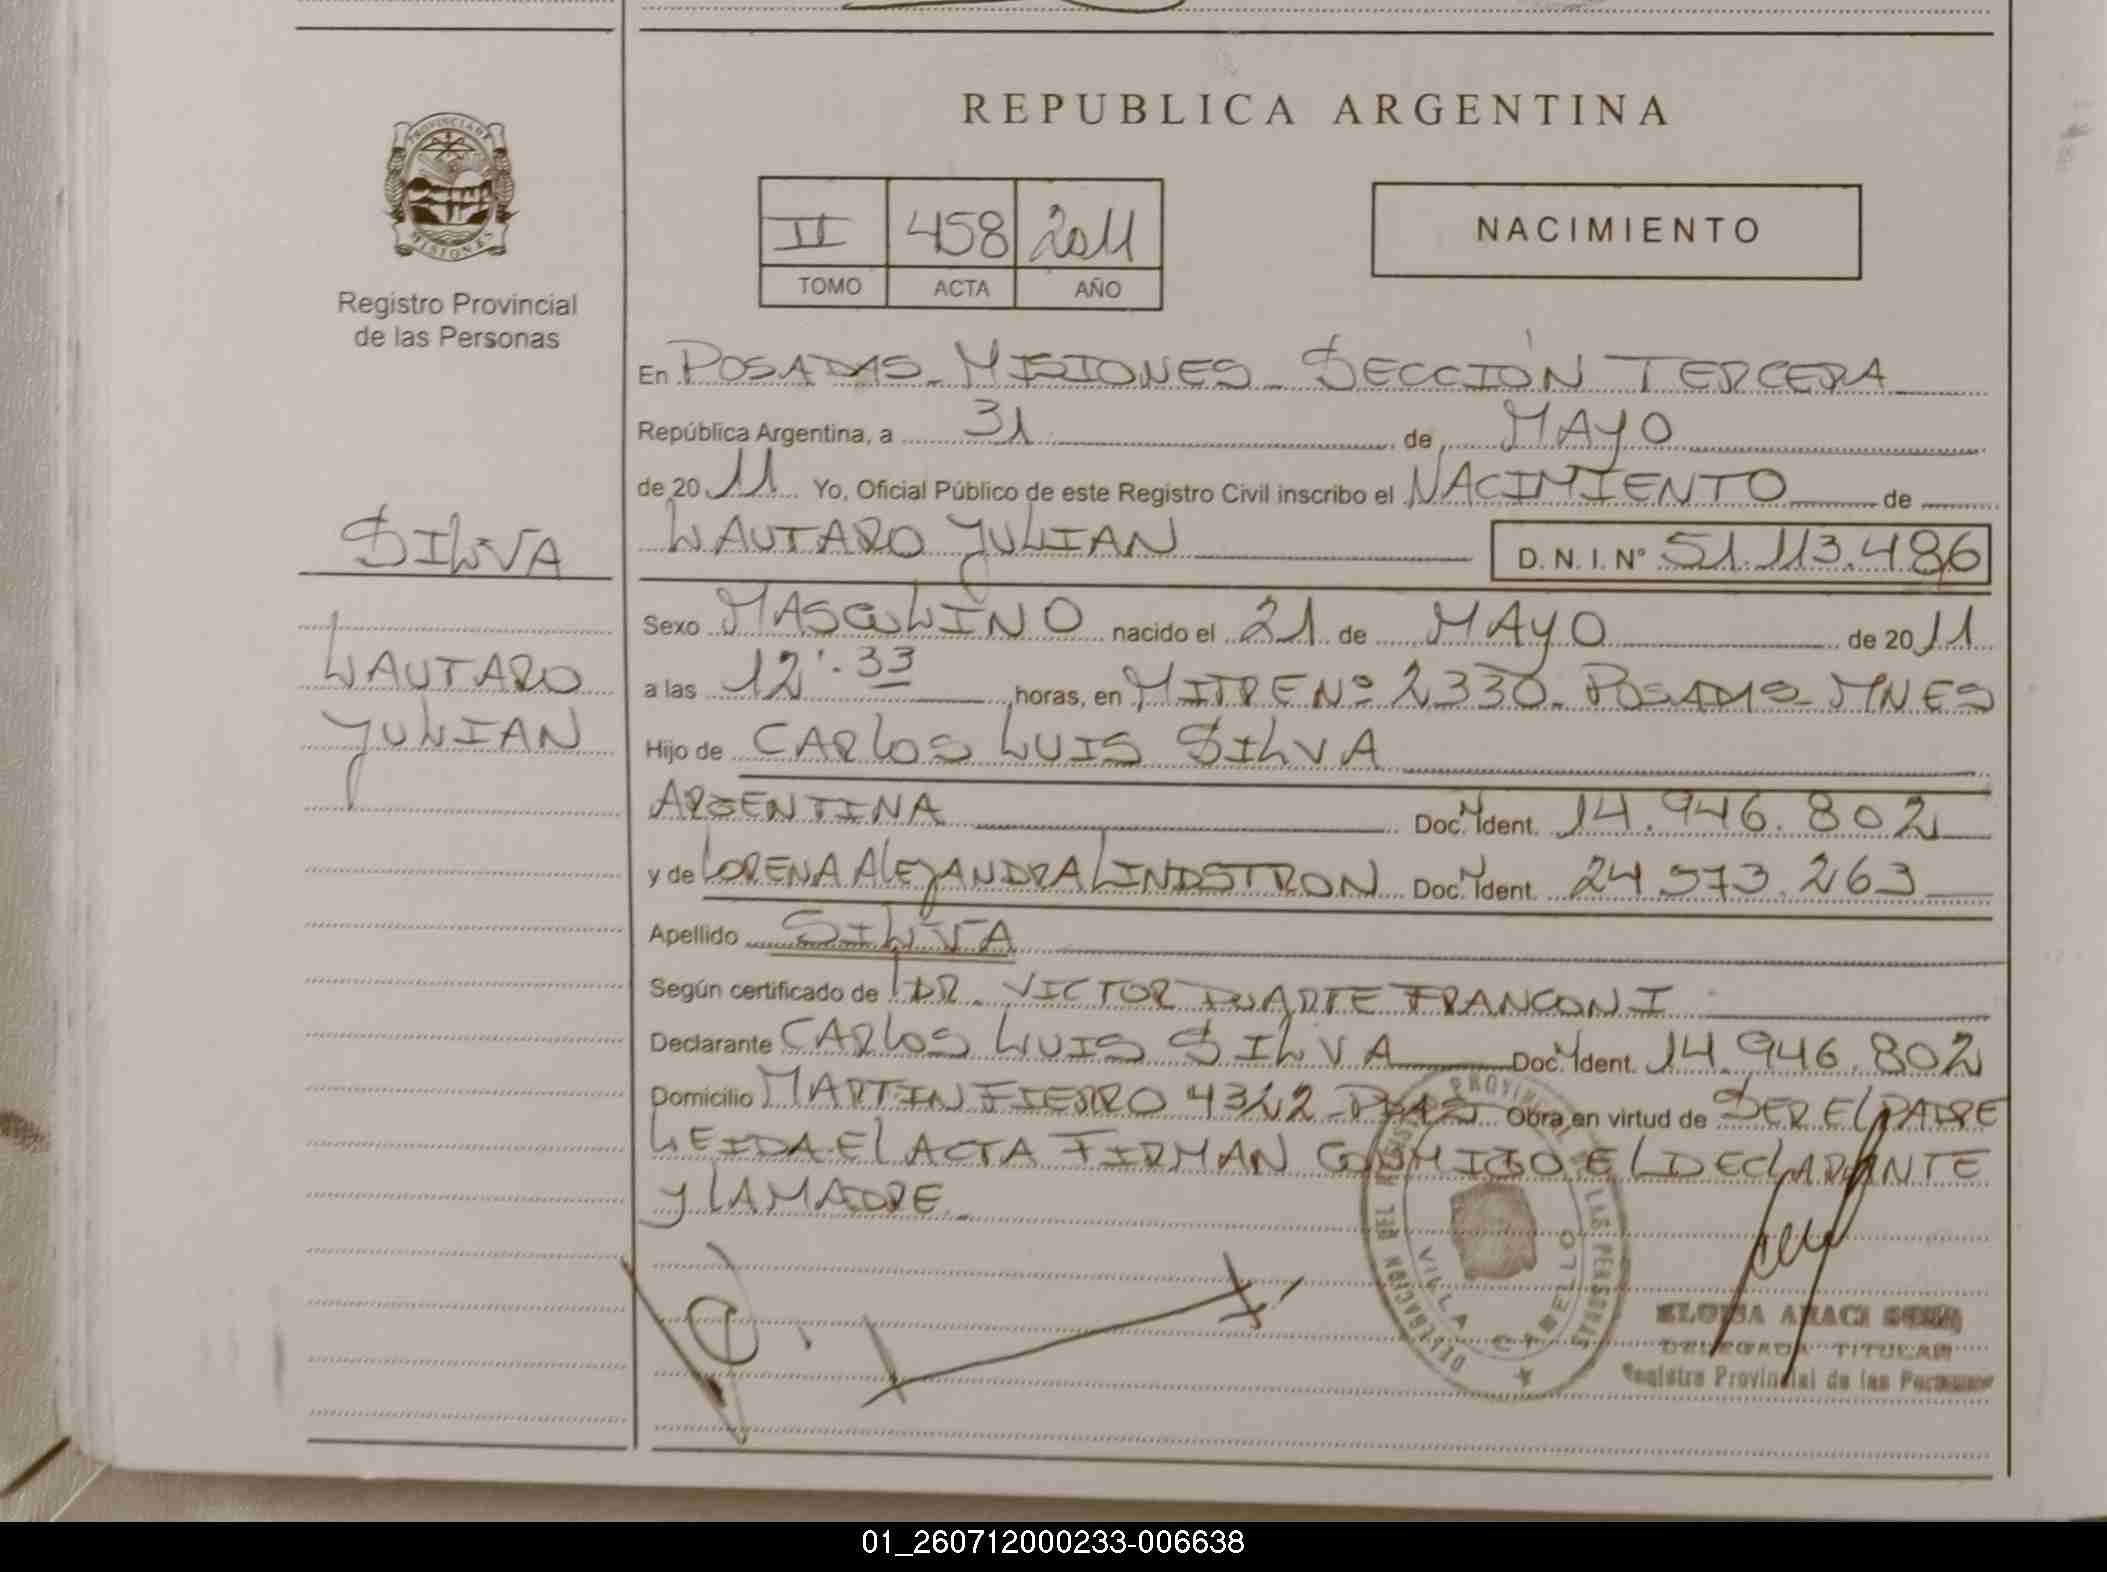 REPUBLICA ARGENTINA
PROVINCIA DE MISIONES
Registro Provincial
de las Personas
II 458 2011
TOMO ACTA AÑO
NACIMIENTO
En POSADAS - MISIONES - SECCIÓN TERCERA
República Argentina, a 31 de MAYO
de 2011 Yo, Oficial Público de este Registro Civil inscribo el NACIMIENTO de
LAUTARO JULIAN D. N. I. N° 51.113.486
SILVA
LAUTARO
JULIAN
Sexo MASCULINO nacido el 21 de MAYO de 2011
a las 12:33 horas, en MITRE Nº 2330 - POSADAS - MNES
Hijo de CARLOS LUIS SILVA
ARGENTINA Doc. Ident. 14.946.802
y de LORENA ALEJANDRA LINDSTRON Doc. Ident. 24.573.263
Apellido SILVA
Según certificado de DR. VICTOR DUARTE FRANCONI
Declarante CARLOS LUIS SILVA Doc. Ident. 14.946.802
Domicilio MARTIN FIERRO 4322 - PDAS Obra en virtud de SER EL PADRE
LEIDA EL ACTA FIRMAN CONMIGO EL DECLARANTE
Y LA MADRE
DELEGACION DEL REGISTRO PROVINCIAL DE LAS PERSONAS
VILLA CABELLO
ELOISA ARACI
DELEGADA TITULAR
Registro Provincial de las Personas
01_260712000233-006638